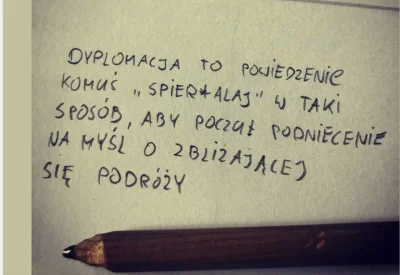 DYPLOMACJA TO POWIEDZENIE
KOMUŚ „SPIER*ALAJ" W TAKI
SPOSÓB, ABY POCZUŁ PODNIECENIE
NA MYŚL O ZBLIŻAJĄCEJ
SIĘ PODRÓŻY